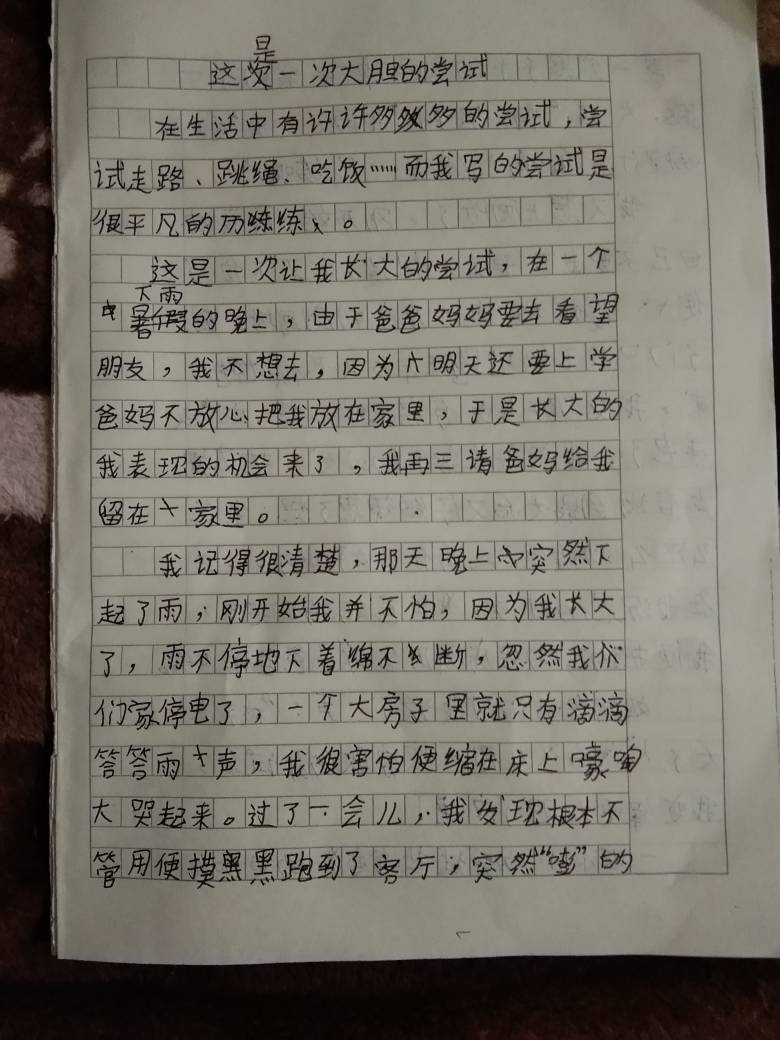 这是一次大胆的尝试
在生活中有许许多多的尝试，尝
试走路、跳绳、吃饭……而我写的尝试是
很平凡的历练。
这是一次让我长大的尝试，在一个
下雨的晚上，由于爸爸妈妈要去看望
朋友，我不想去，因为明天还要上学
爸妈不放心把我放在家里，于是长大的
我表现的机会来了，我再三请爸妈给我
留在家里。
我记得很清楚，那天晚上突然下
起了雨，刚开始我并不怕，因为我长大
了，雨不停地下着绵不断，忽然我
们家停电了，一个大房子里就只有滴滴
答答雨声，我很害怕便缩在床上嚎啕
大哭起来。过了一会儿，我发现根本不
管用便摸黑黑跑到了客厅，突然“嘭”的